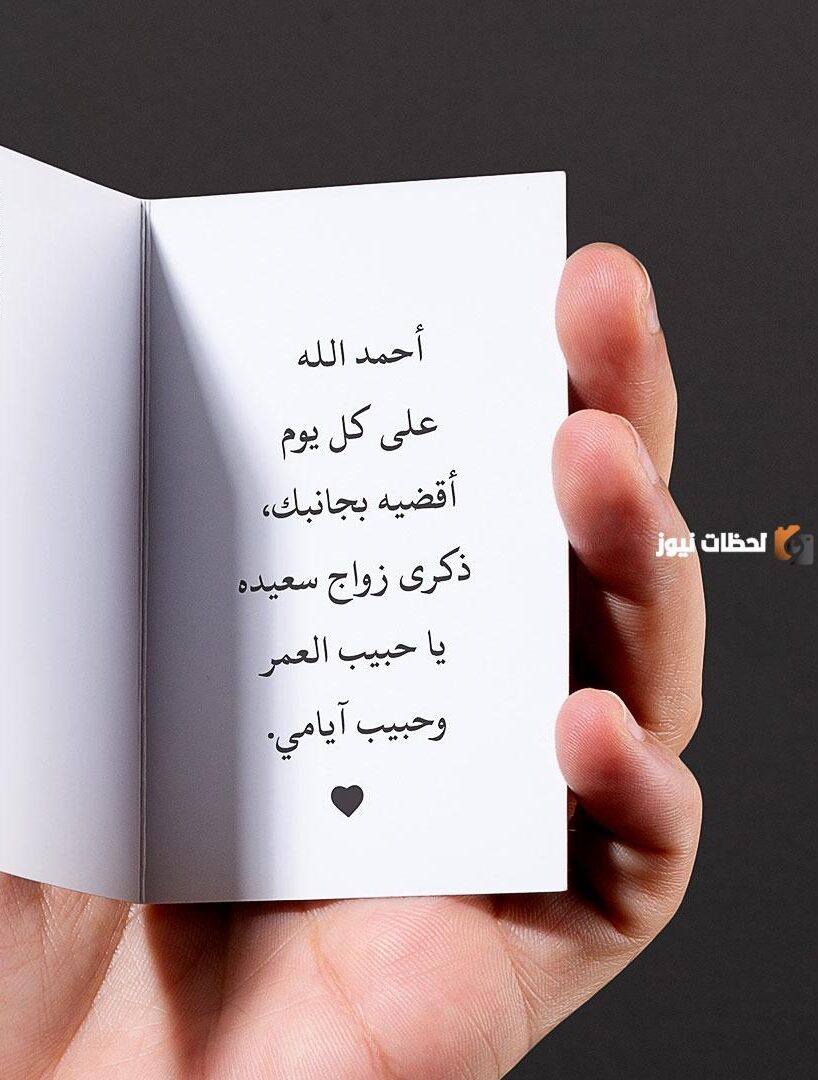 أحمد الله
على كل يوم
أقضيه بجانبك،
ذكرى زواج سعيده
يا حبيب العمر
وحبيب آيامي.
لحظات نيوز